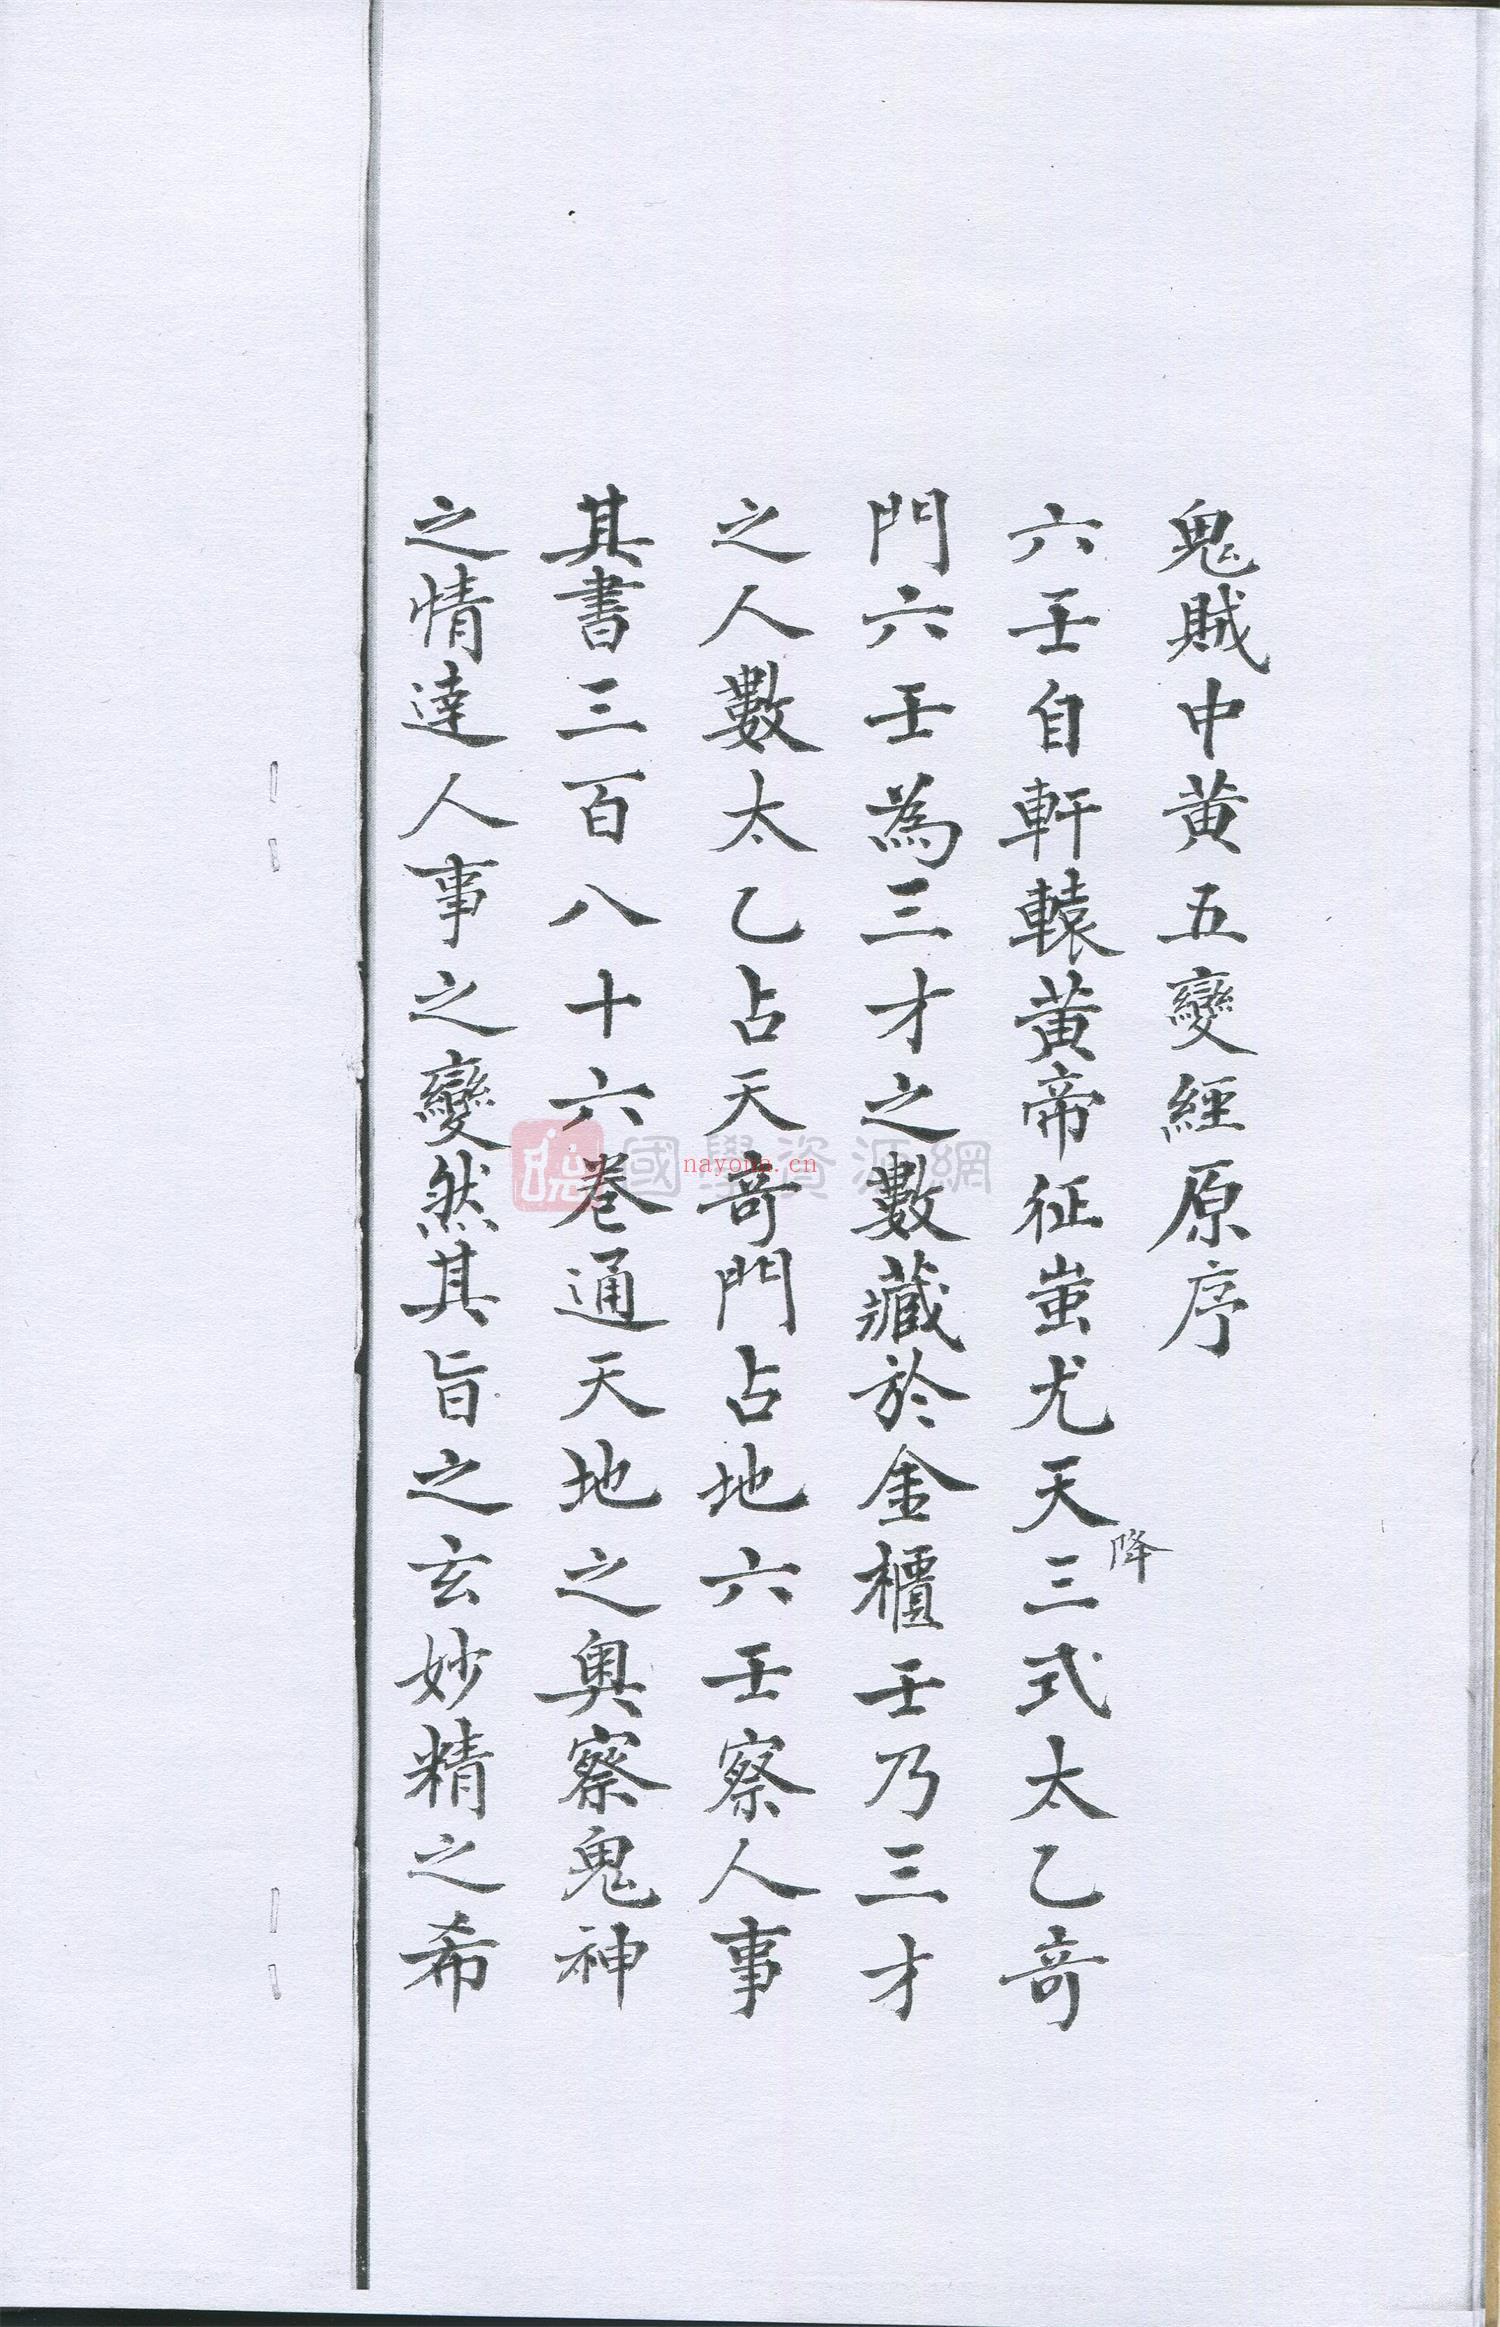 鬼賊中黃五變經原序
六壬自軒轅黃帝征蚩尤天降三式太乙竒
門六壬為三才之數藏於金櫃壬乃三才
之人數太乙占天竒門占地六壬察人事
其書三百八十六卷通天地之奧察鬼神
之情達人事之變然其旨之玄妙精之希
國學資源網
nayona.cn